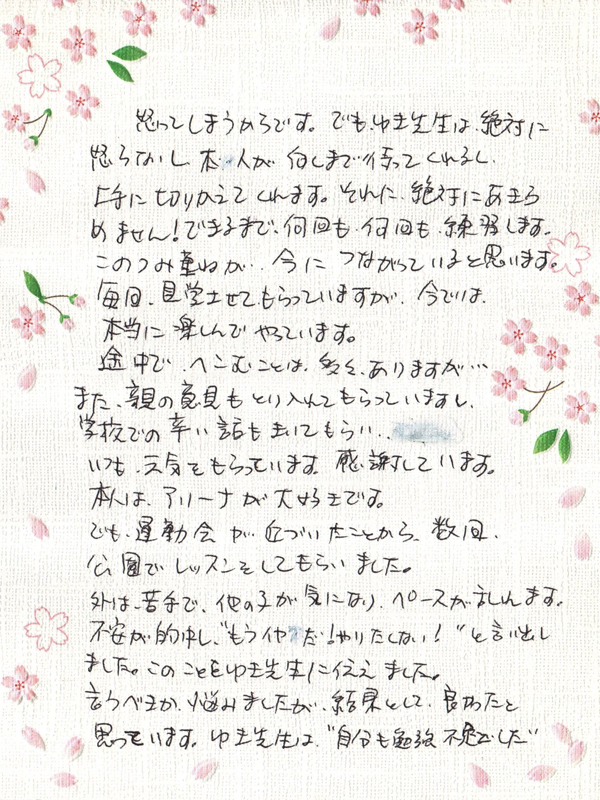 怒ってしまうからです。でも、ゆき先生は、絶対に
怒らないし、本人が何しまで待ってくれるし、
上手に切りかえてくれます。それに、絶対にあきら
めません!できるまで、何回も、何回も、練習します。
このつみ重ねが、今につながっていると思います。
毎回、見学させてもらっていますが、今では、
本当に楽しんでやっています。
途中で、へこむことは、多く、ありますが…
また、親の意見もとり入れてもらっていますし、
学校での辛い話もきいてもらい、
いつも、元気をもらっています。感謝しています。
本人は、アリーナが大好きです。
でも、運動会が近づいたことから、数回、
公園でレッスンをしてもらいました。
外は、苦手で、他の子が気になり、ペースが乱れます。
不安が的中し、"もうイヤだ!やりたくない!"と言い出し
ました。このことをゆき先生に伝えました。
言うべきか、悩みましたが、結果として、良かったと
思っています。ゆき先生は、"自分も勉強不足でした"